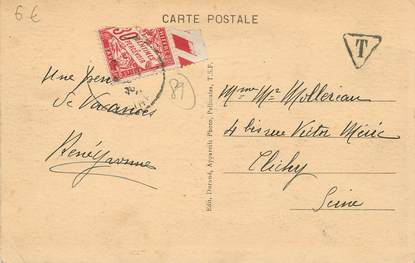 6 €
CARTE POSTALE
T
30
81
Une pensée
de Vacances
René Yvonne
Edit. Durand, Appareils Photo, Pellicules, T.S.F.
Mme Mr Mollereau
4 bis rue Victor Méric
Clichy
Seine